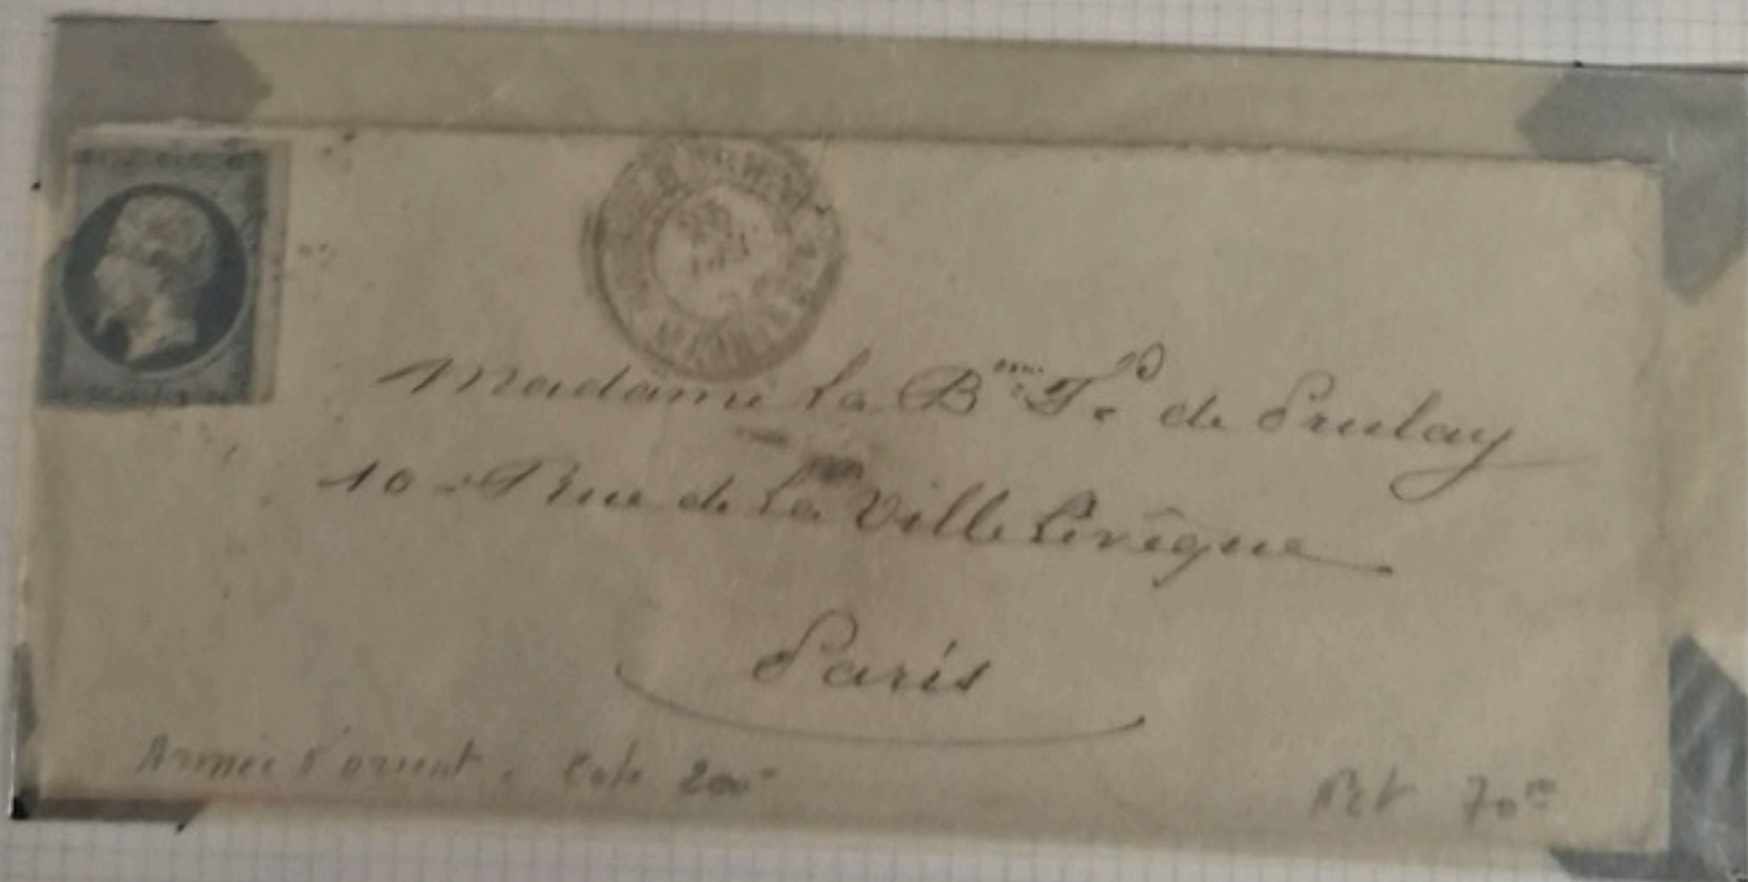 Madame la B^nne F. de Prulay
10 - Rue de La Ville Lévêque
Paris
Armée d'orient. Cote 200-
Net 70 00